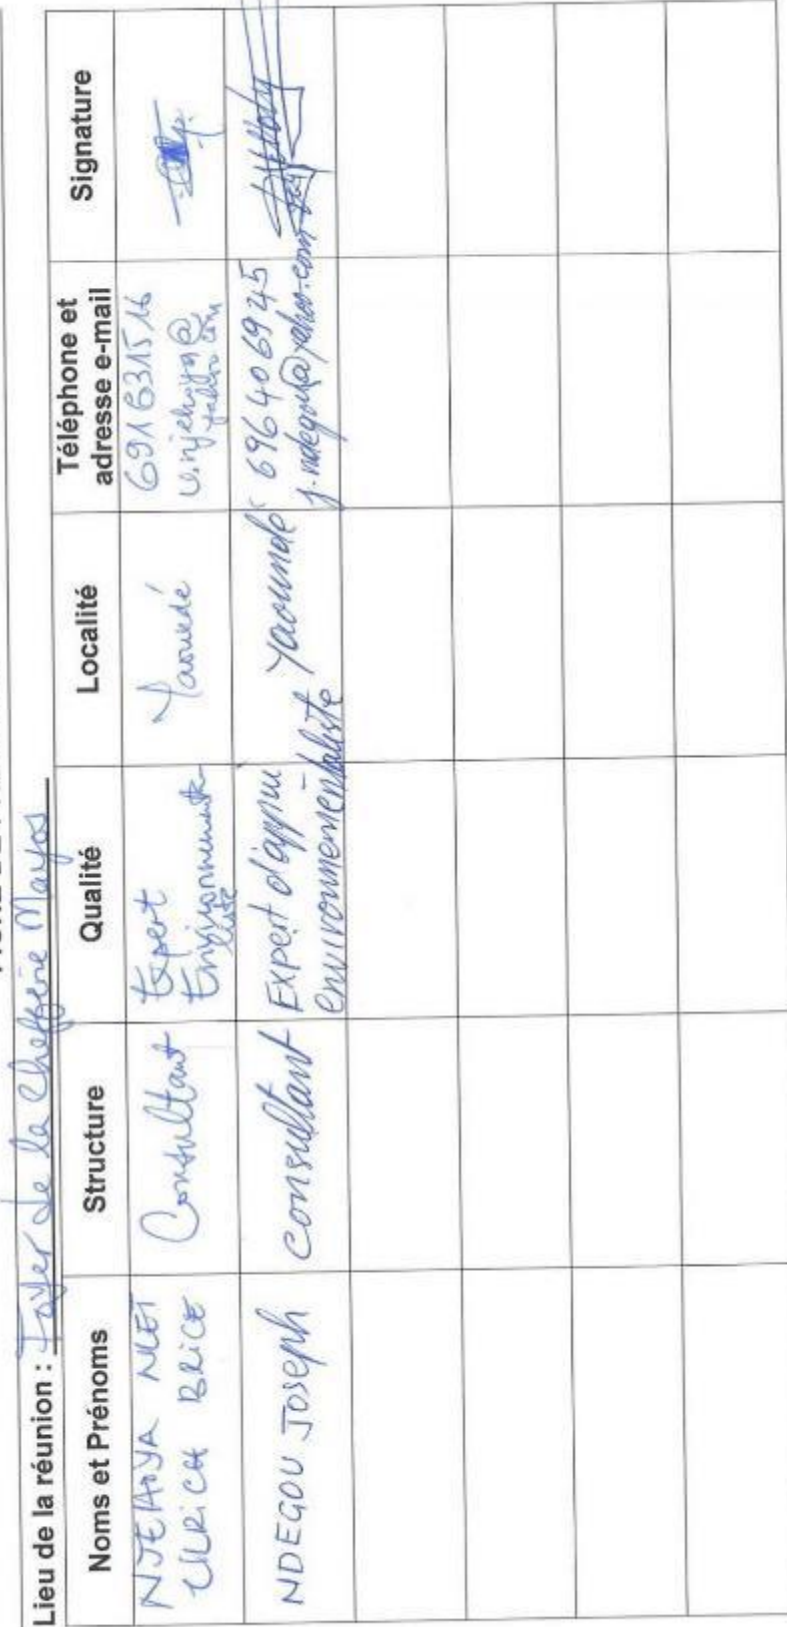 Lieu de la réunion : Foyer de la Chefferie Mayos
Noms et Prénoms Structure Qualité Localité Téléphone et adresse e-mail Signature
NJEHOYA
ULRICH BRICE
Consultant
Expert
Environnementa-
liste
Yaoundé
691631516
u.njehoya@
yahoo.com
NDEGOU Joseph
Consultant
Expert d'appui
environnementaliste
Yaoundé
696406925
j.ndegou@yahoo.com